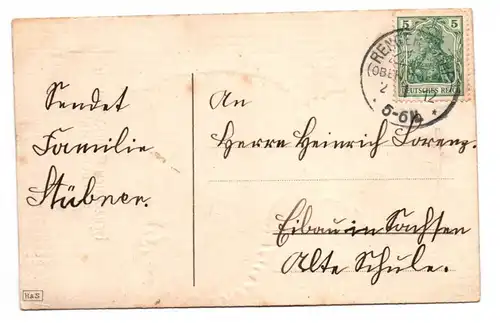 Sendet
Familie
Stübner.
An
Herrn Heinrich Lorenz.
Eibau in Sachsen
Alte Schule.
5 5
DEUTSCHES REICH
5-6N.